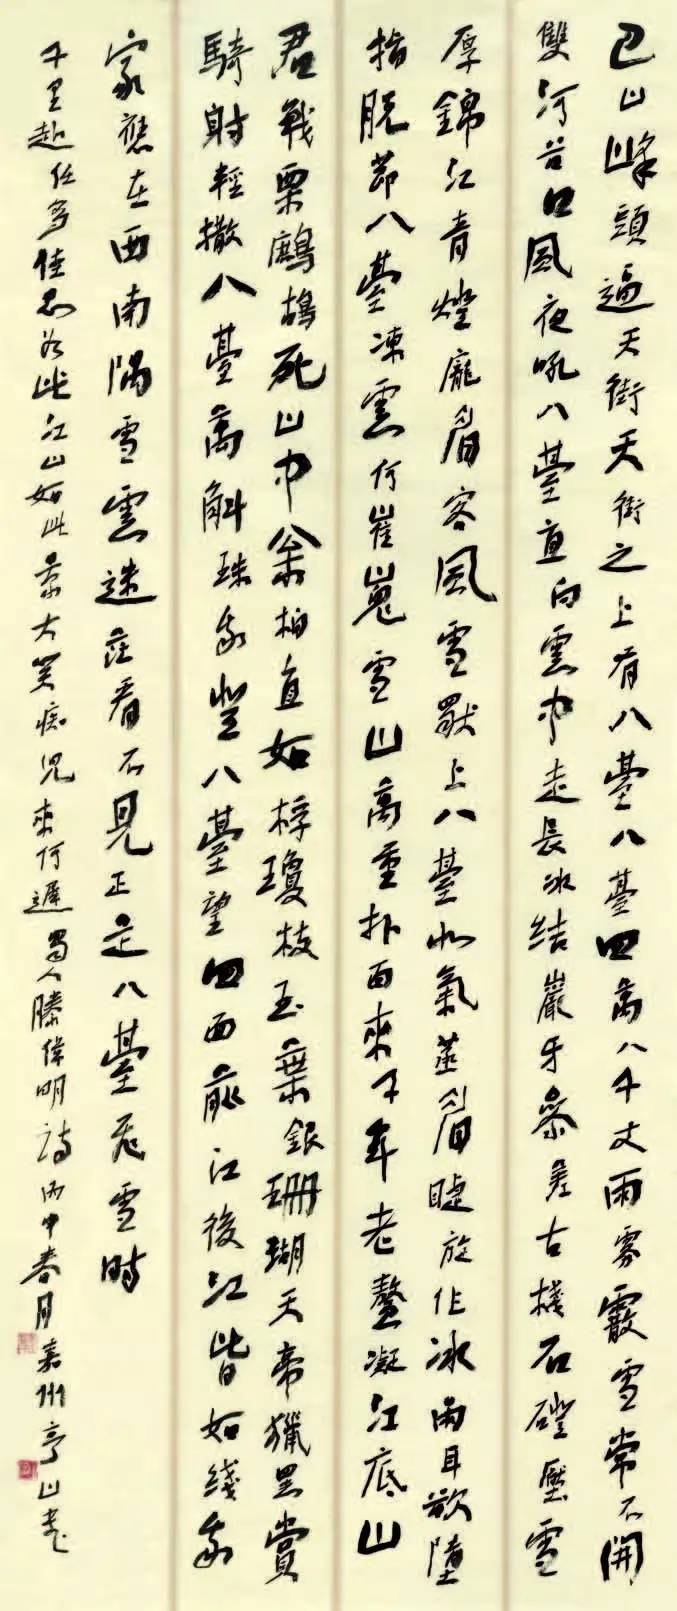 巴山峰頭逼天街天街之上有八臺八臺四萬八千丈雨雾霰雪常不開
雙河谷口風夜吼八臺直向雲中走長冰結巖牙參差古棧石磴壓雪
厚錦江青燈龐眉客風雪獸上八臺山氣蒸眉睫旋作冰兩耳欲墮
指脱節八臺凍雲何崔嵬雪山萬重扑面來千年老鰲凝江底山
君戰栗鷓鴣死山中翁柏直如桴瓊枝玉葉銀珊瑚天帝獵罢賞
騎射輕撒八臺萬斛珠我登八臺望四面前江後江皆如綫我
家應在西南隅雪雲迷茫看不見正是八臺飛雪時
千里赴任多佳思為此江山如此景大笑痴兒來何遲蜀人滕偉明詩丙申春月嘉州亭山書